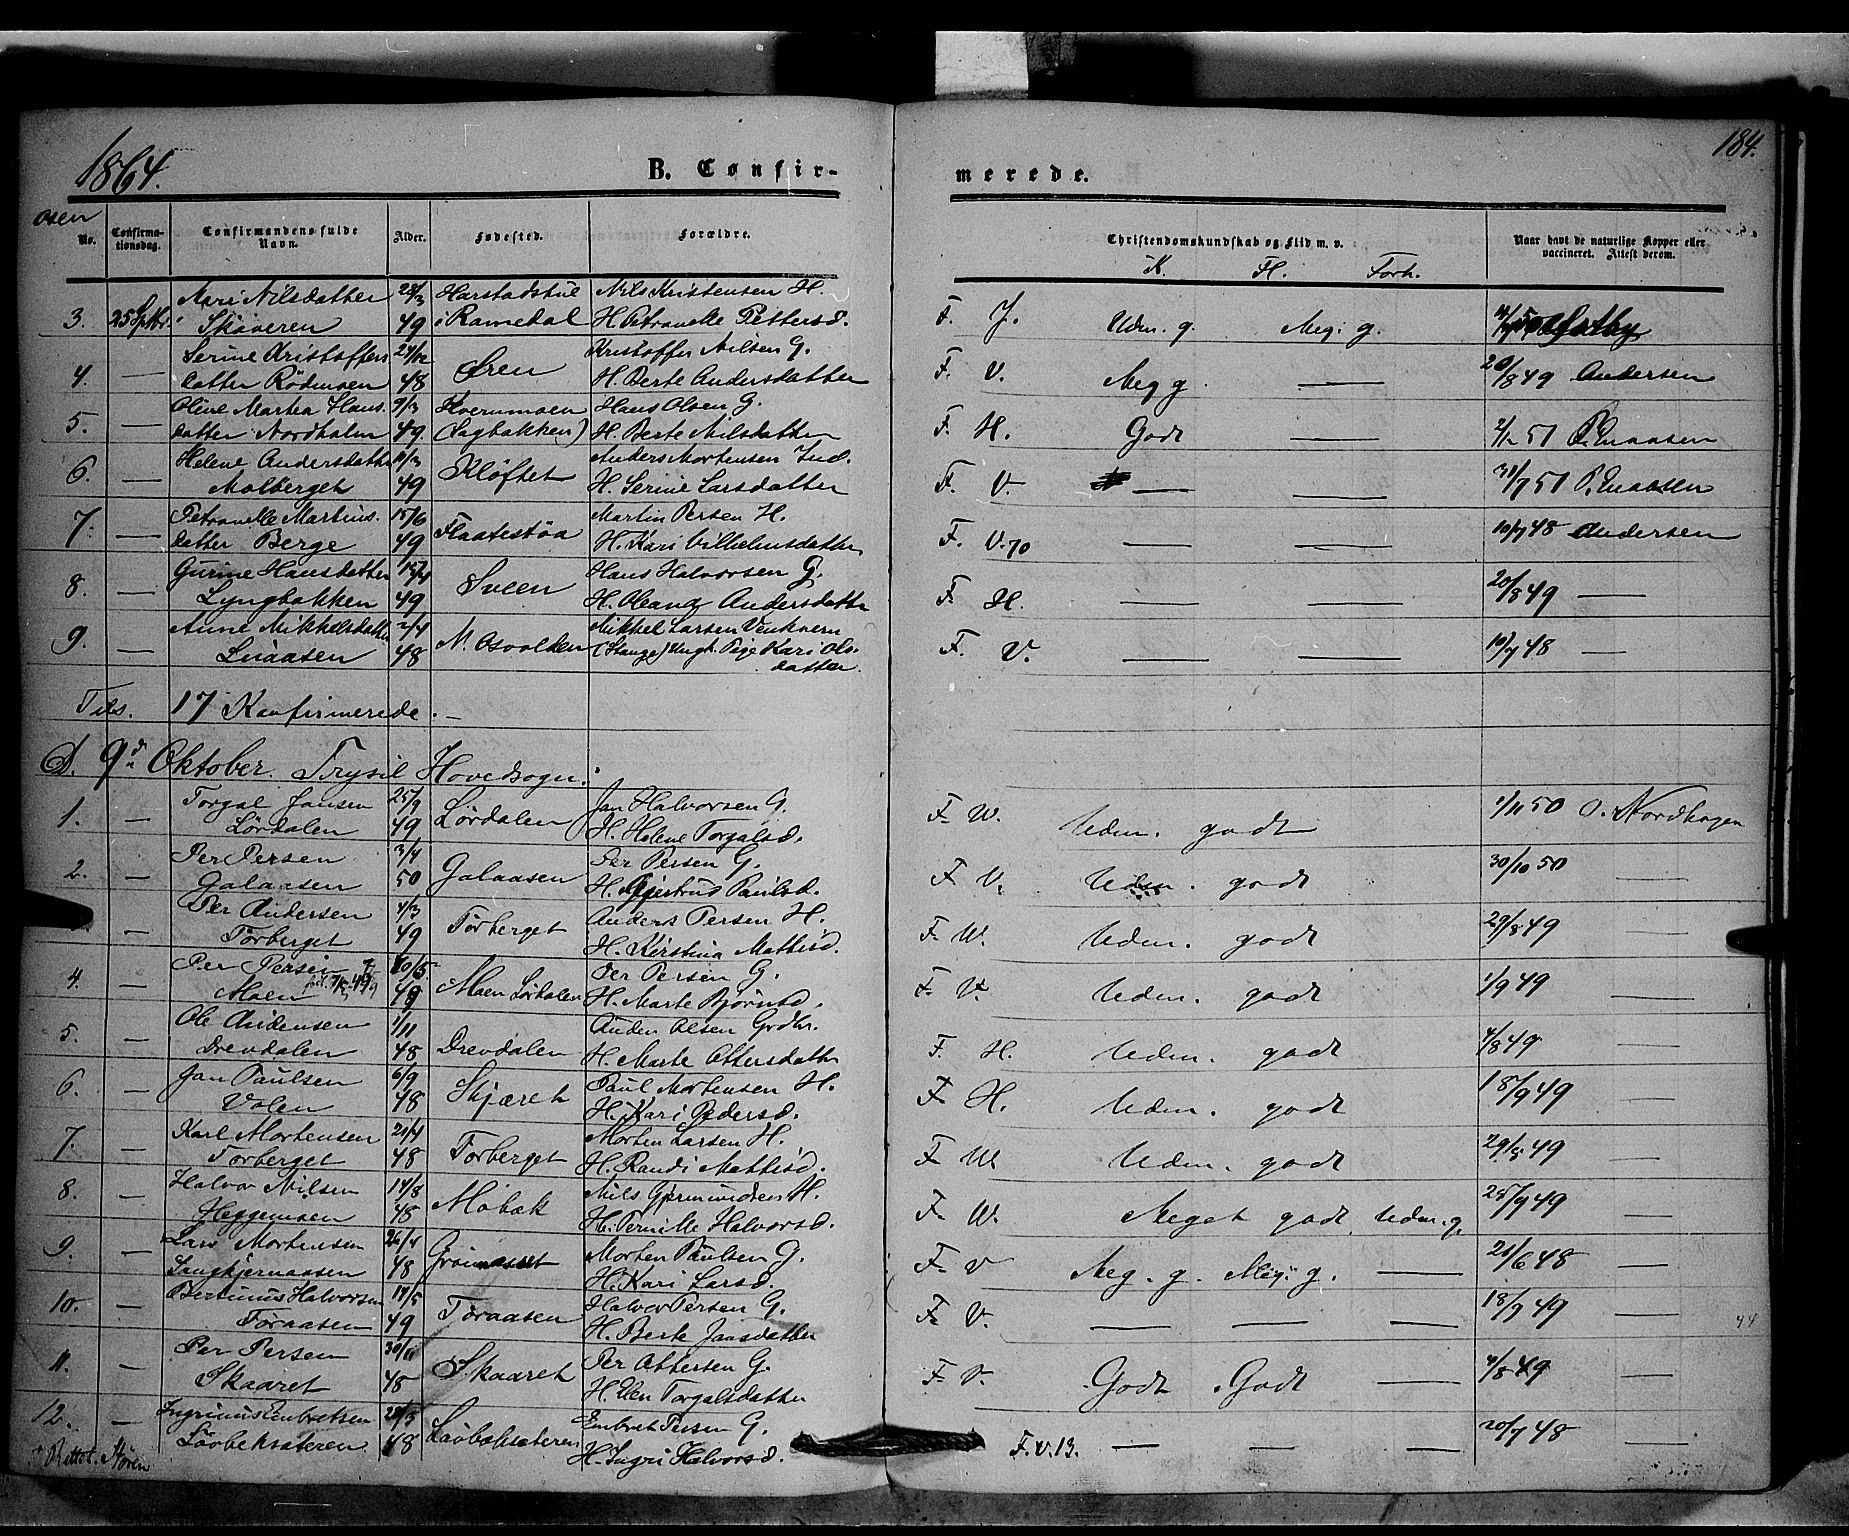 1864.
B. Confir-
merede.
184.
Osen
No.
Confirma-
tionsdag.
Confirmandens fulde
Navn.
Alder.
Fødested.
Forældre.
Christendomskundskab og Flid m. v.
K. Fl. Forh.
Naar havt de naturlige Kopper eller
vaccineret. Attest derom.
Mari Nilsdatter 28/3 Harstadstul Nils Kristensen H.
3. 25 Septbr. Skåveren 49 i Ramedal H. Petronelle Pettersd. F. J. Udm. g. Meg. g.
Serine Kristoffers 24/12 Kristoffer Nilsen G.
4. — datter Rödmoen 48 Øren H. Berte Andersdatter F. V. Meg g. — 20/8 49 Andersen
Oline Martea Hans 9/3 Kvernmoen Hans Olsen G.
5. — datter Nordholm 49 (Sagbakken) H. Berte Nilsdatter F. H. Godt — 51
Helene Andersdatter 11/3 Anders Mortensen Ind.
6. — Molberget 49 Kløftet H. Serine Larsdatter F. V. — — 31/7 51
Petronelle Martins 15/6 Martin Persen H.
7. — datter Berge 49 Flaatestøa H. Kari Vilhelmsdatter F. V. 70 — — 10/7 48 Andersen
Gurine Hansdatter 15/4 Hans Halvorsen G.
8. — Lyngbakken 49 Sveen H. Oleana Andersdatter F. H. — — 20/8 49 —
Anne Mikkelsdatter 2/4 Mikkel Larsen
9. — Snaasen 48 N. Osvolden (Stange) Ungk. Pige Kari Ols- F. V. — — 10/7 48 —
datter
Tils. 17 Konfirmerede. —
D. 9de Oktober. Trysil Hovedsogn:
Torgal Jansen 25/9 Jan Halvorsen G.
1. — Lørdalen 49 Lørdalen H. Helene Torgalsd. F. W. Udm. godt 1/11 50 O. Nordhagen
Per Persen 3/4 Per Persen G.
2. — Galaasen 50 Galaasen H. Gjertrud Paulsd. F. V. Udm. godt 30/10 50 —
Per Andersen 4/3 Anders Persen H.
— Törberget 49 Törberget H. Kirstina Mathisd. F. W. Udm. godt 29/8 49 —
Per Persen 10/5 Per Persen G.
4. — Moen 49 Moen Lørdalen H. Marte Bjørnsd. F. V. Udm. godt 1/9 49 —
Ole Audensen 1/11 Auden Olsen Grdbr.
5. — Drevdalen 48 Drevdalen H. Marte Ottersdatter F. H. Udm. godt 4/8 49 —
Jan Paulsen 6/9 Paul Mortensen H.
6. — Volen 48 Skjæret H. Kari Pedersd. F. H. Udm. godt 15/9 49 —
Karl Mortensen 21/4 Morten Larsen H.
7. — Törberget 48 Törberget H. Randi Mathisd. F. W. Udm. godt 29/8 49 —
Halvor Nilsen 14/8 Nils Gjermundsen H.
8. — Heggemoen 48 Möbæk H. Pernille Halvorsd. F. W. Meget godt Udm. g. 25/9 49 —
Lars Mortensen 26/4 Morten Paulsen G.
9. — Langkjernaasen 48 Grönaaset H. Kari Larsd. F. V Meg. g. Meg. g. — 21/6 48 —
Berninus Halvorsen 19/5 Halvor Persen G.
10. — Föraasen 49 Föraasen H. Berte Jansdatter F. V. — — — 18/9 49 —
Per Persen 30/11 Per Ottersen G.
11. — Skaaret 48 Skaaret H. Elen Torgalsdatter F. V. Godt Godt — 4/8 49 —
Ingrinus Embretsen 28/3 Embret Persen G.
12. — Lövbeksæteren 48 Lövbeksæteren H. Ingri Halvorsd. F. V. 13. — — — 20/7 48 —
Rettet. Støren